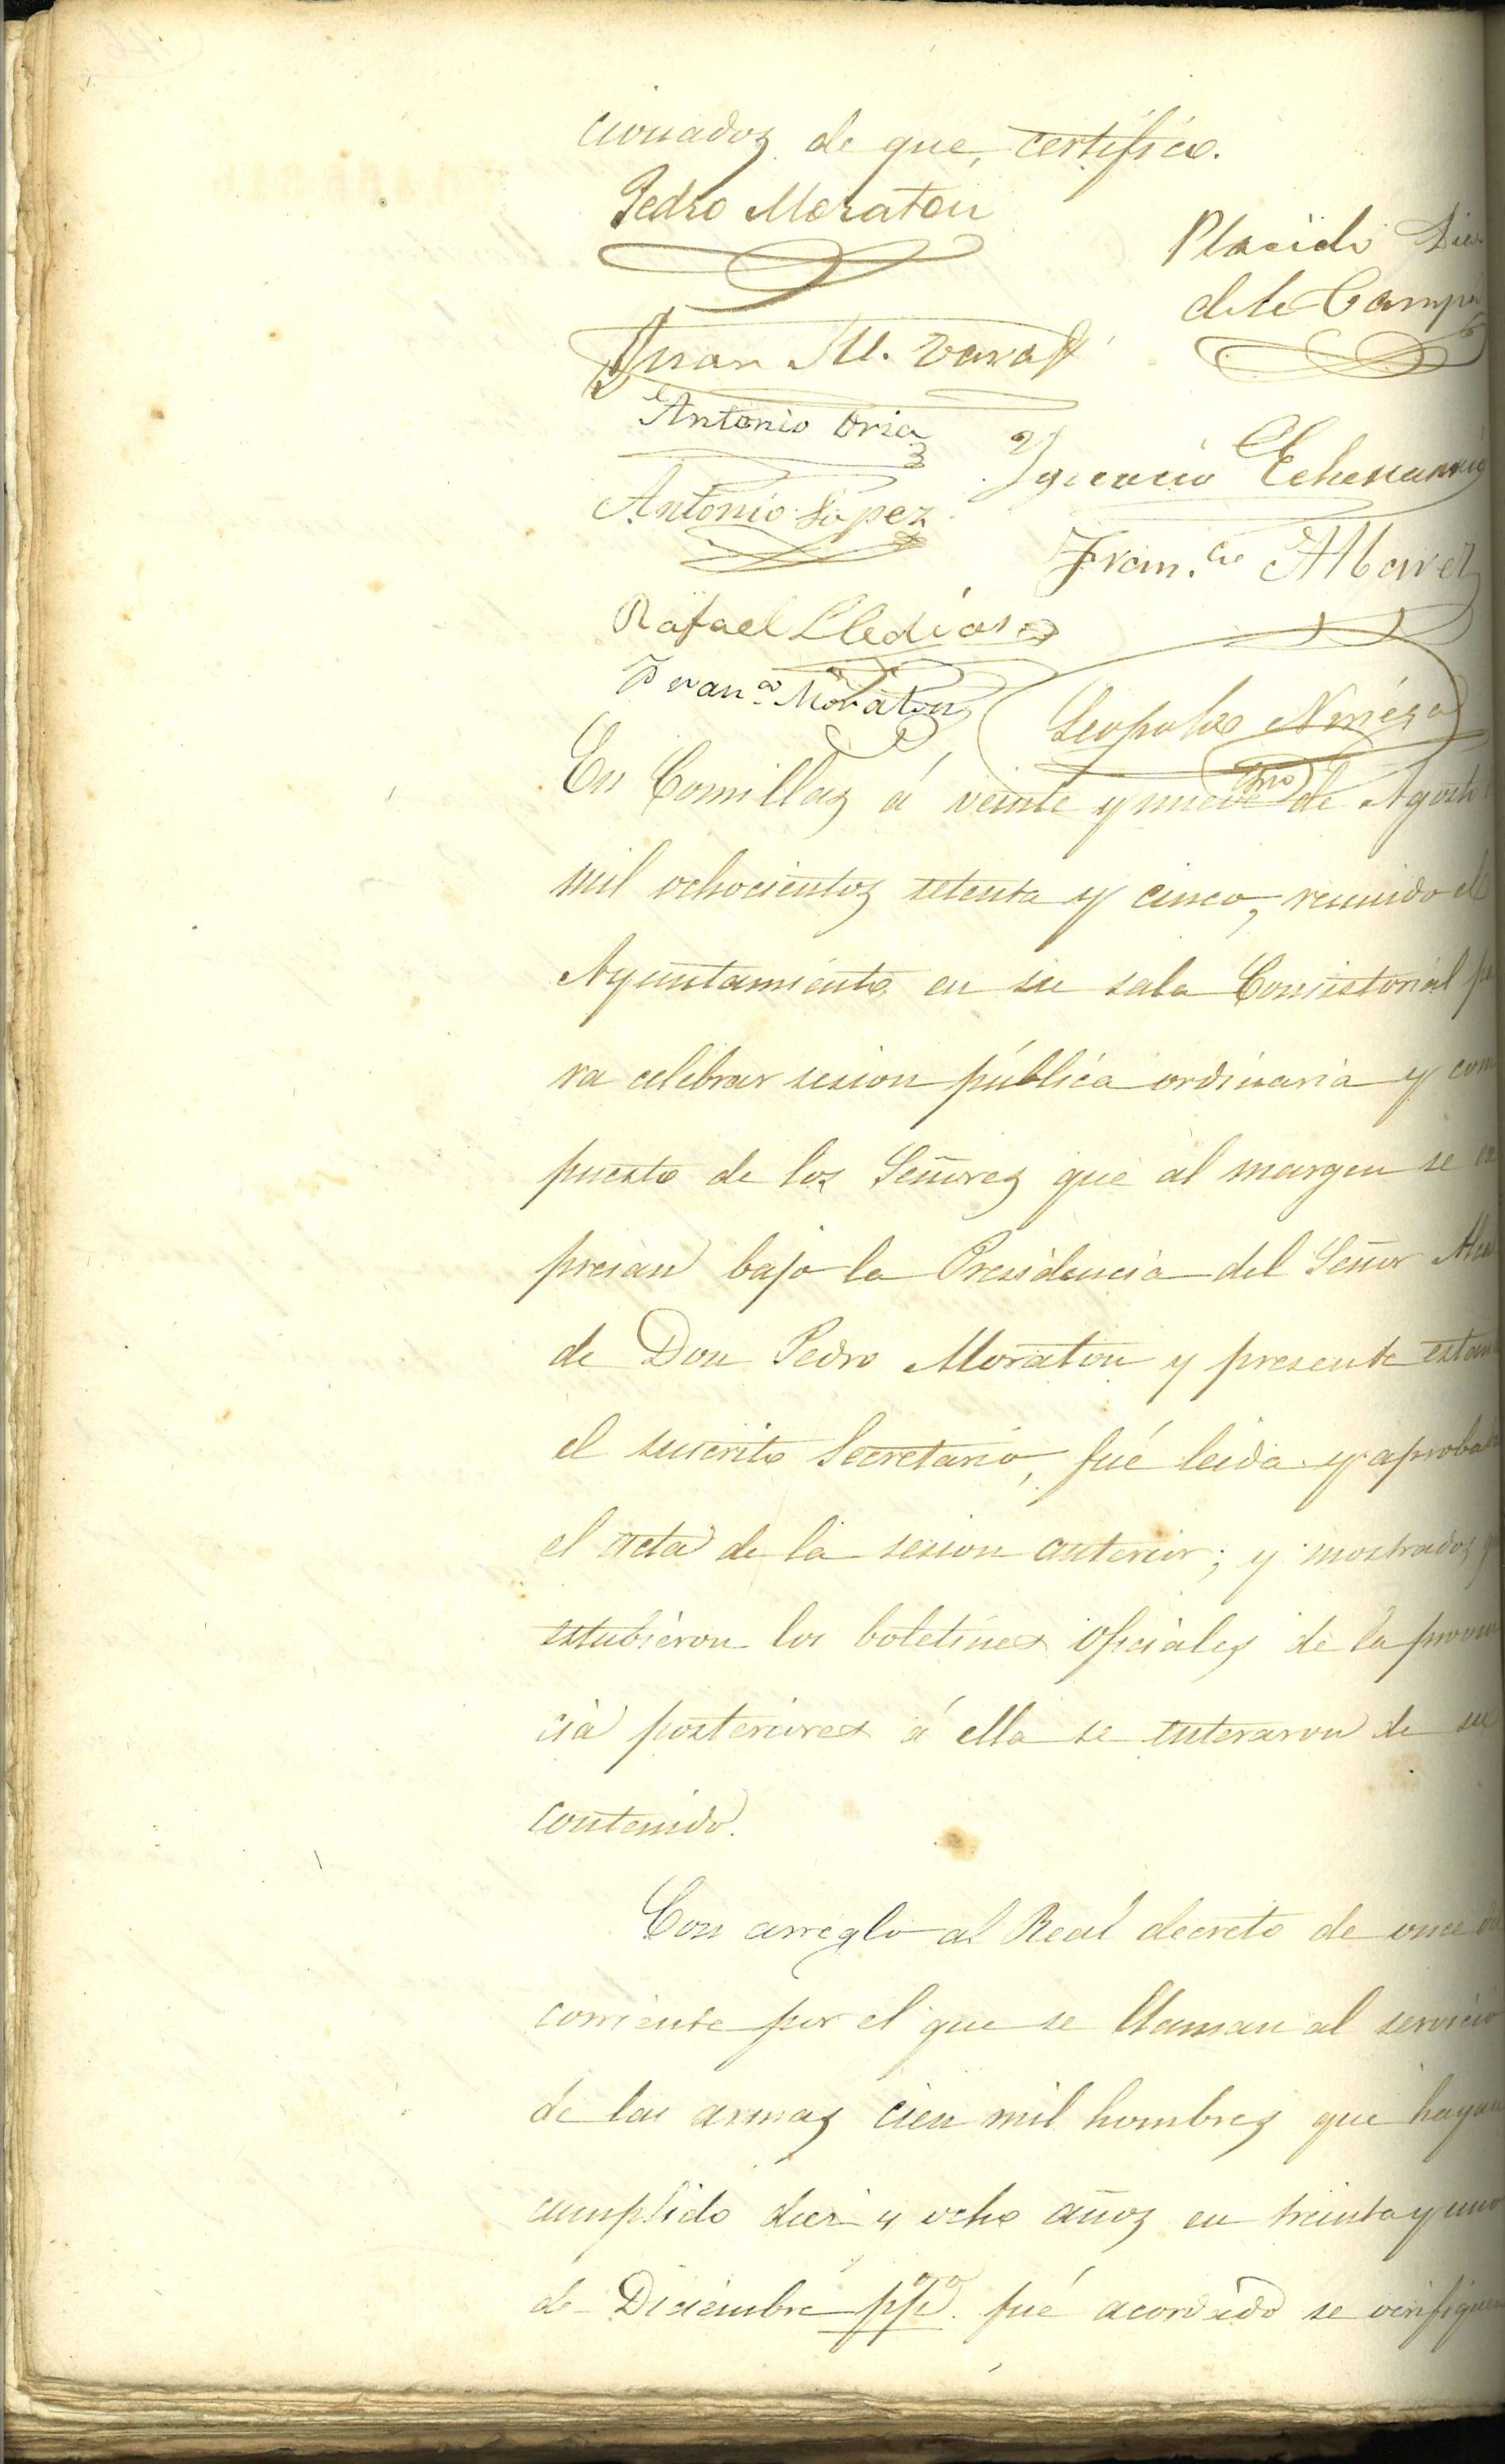 cionados de que, certifico.
Pedro Moraton
Placido Diez
de la Campa
Juan M. 
Antonio Oria
Ygnacio Echevarria
Antonio López
Fran.co Albarez
Rafael Lledias
Fran.co Moraton
Leopoldo
Srio
En Comillas á veinte y nueve de Agosto
mil ochocientos setenta y cinco, reunido el
Ayuntamiento en su sala Consistorial pa
ra celebrar sesion pública ordinaria y com
puesto de los Señores que al margen se es
presan bajo la Presidencia del Señor Alcal
de Don Pedro Moraton y presente estan
el suscrito Secretario, fué leida y aprobada
el acta de la sesion anterior; y mostrados q
estubieron los boletines oficiales de la provin
cia posteriores á ella se enteraron de su
contenido.
Con arreglo al Real decreto de once del
corriente por el que se llaman al servicio
de las armas cien mil hombres que hayan
cumplido diez y ocho años en treinta y uno
de Diciembre ppdo. fué acordado se verifique